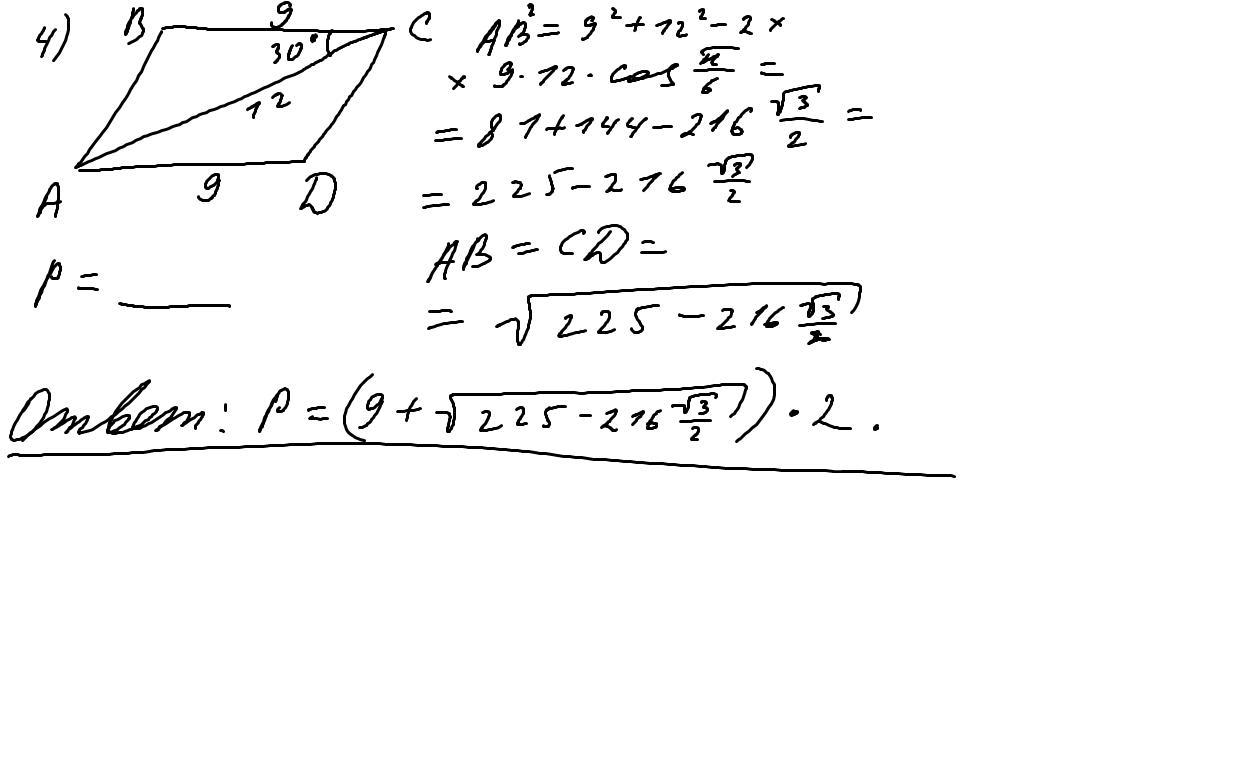 4) B 9 C
30°
12
A 9 D
P = ____
AB² = 9² + 12² - 2 ×
× 9 · 12 · cos π/6 =
= 81 + 144 - 216 √3/2 =
= 225 - 216 √3/2
AB = CD =
= √(225 - 216 √3/2)
Ответ: P = (9 + √(225 - 216 √3/2)) · 2 .